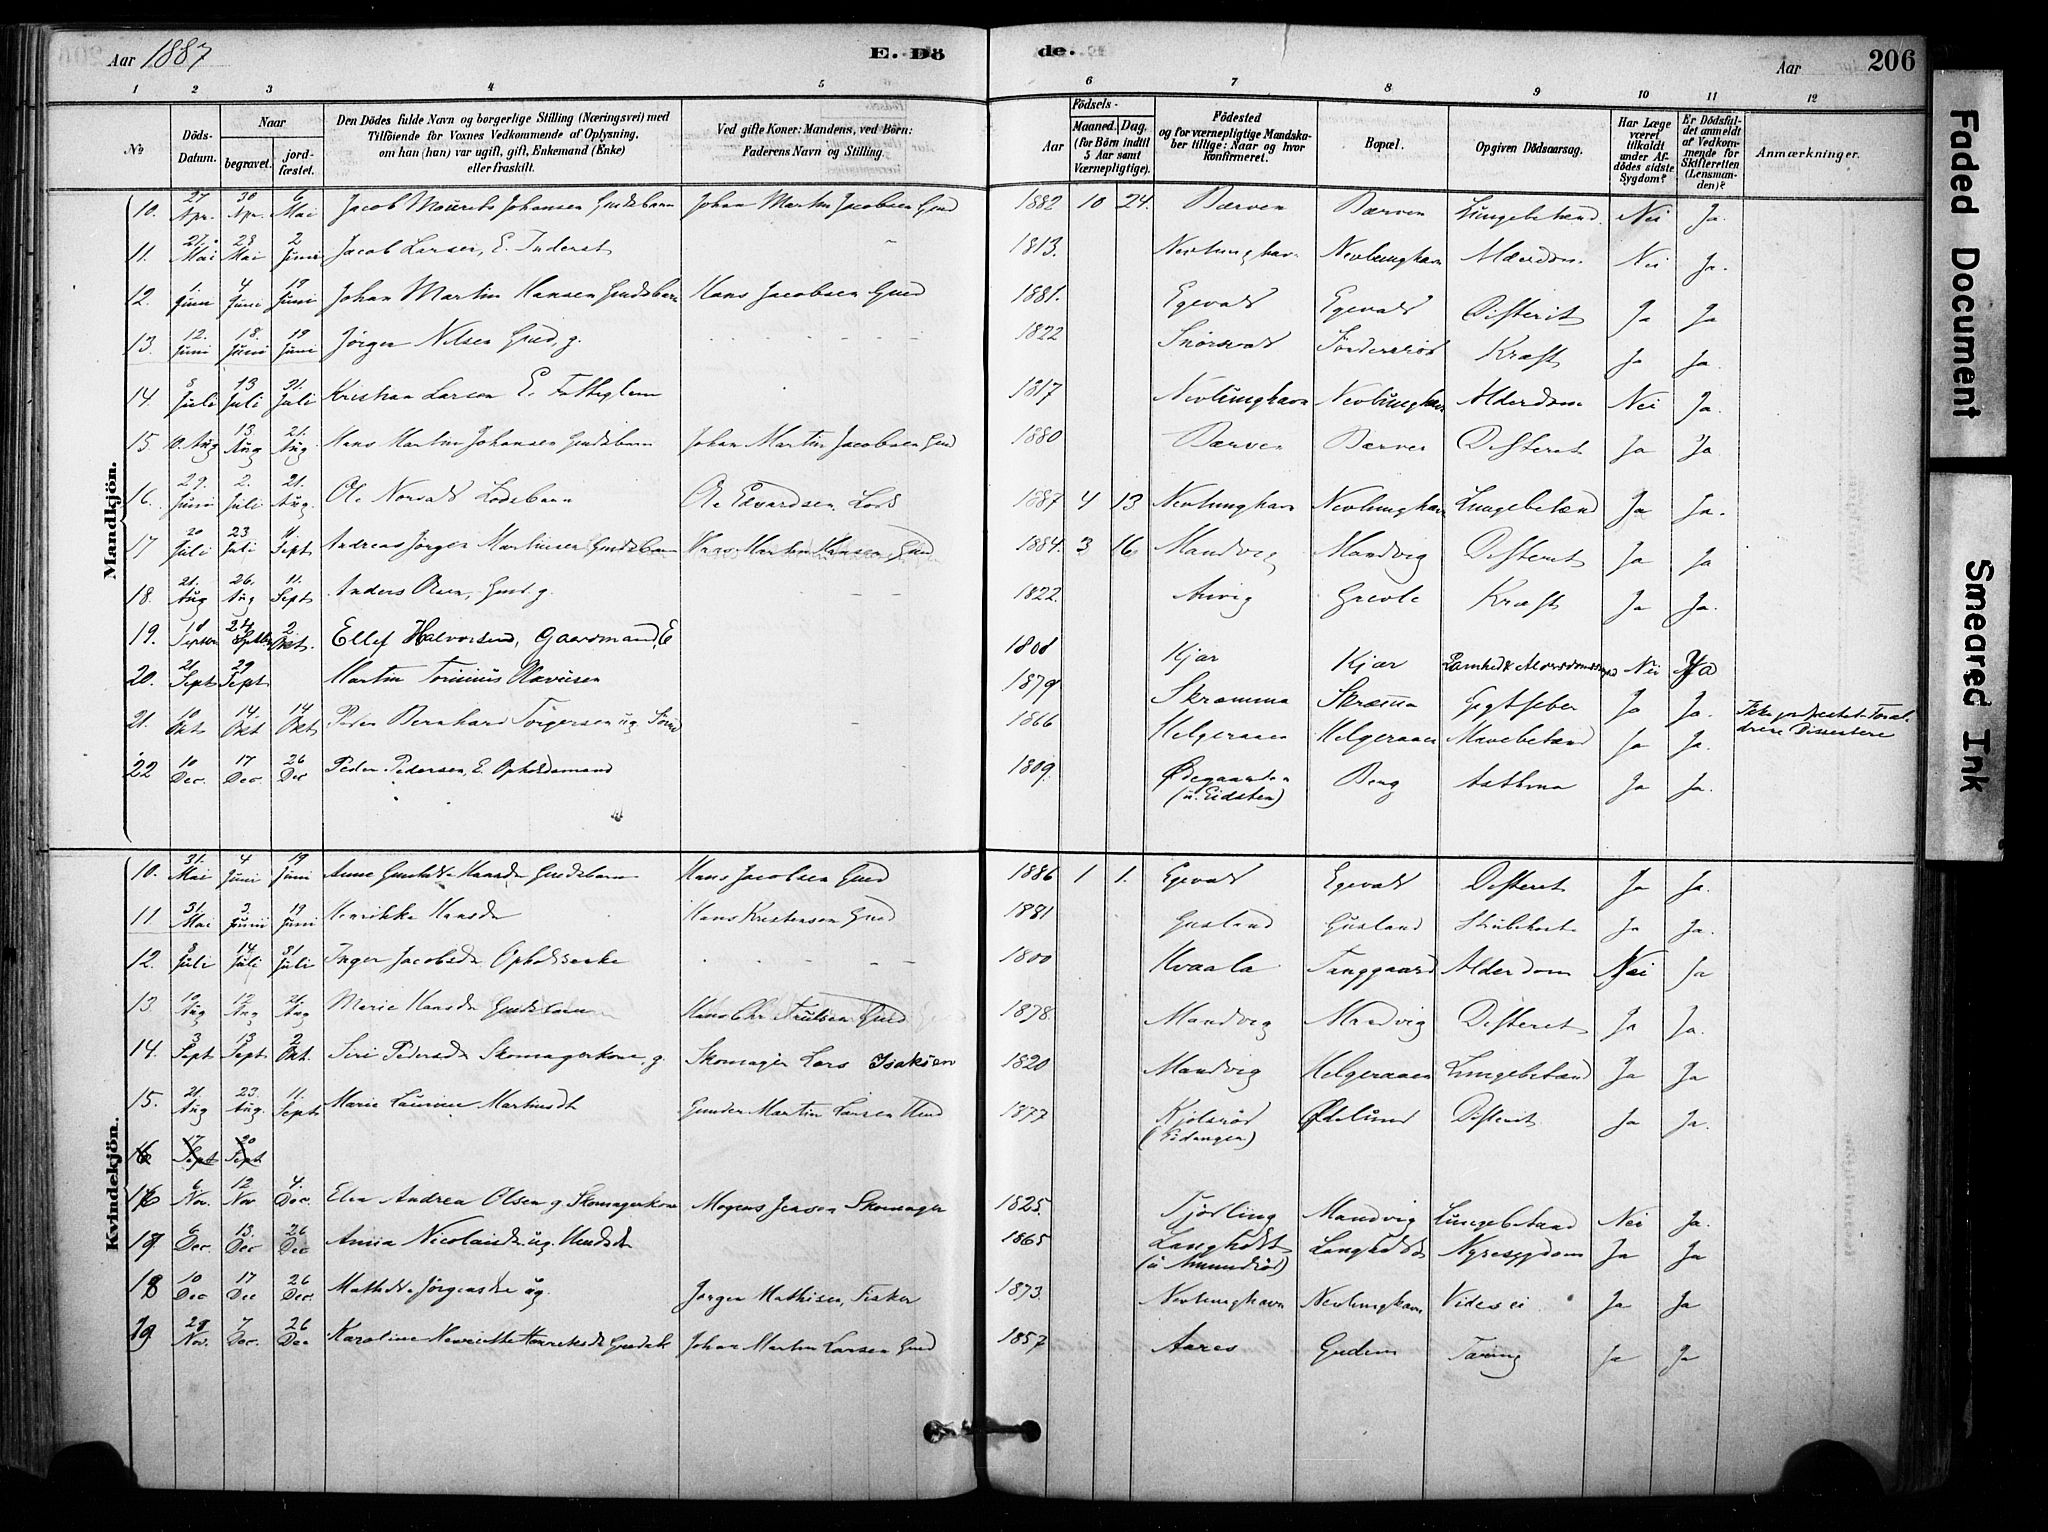 Aar 1887
E. Dö de.
Aar
206
1 2 3 4 5 6 7 8 9 10 11 12
№
Döds-Datum.
Naar
begravet.
jord-fæstet.
Den Dödes fulde Navn og borgerlige Stilling (Næringsvei) med
Tilföiende for Voxnes Vedkommende af Oplysning,
om han (hun) var ugift, gift, Enkemand (Enke)
eller fraskilt.
Ved gifte Koner: Mandens, ved Börn:
Faderens Navn og Stilling.
Födsels-
Aar
Maaned. Dag.
(for Börn indtil
5 Aar samt
Værnepligtige).
Födested
og for værnepligtige Mandska-
ber tillige: Naar og hvor
konfirmeret.
Bopæl.
Opgiven Dödsaarsag.
Har Læge
været
tilkaldt
under Af-
dödes sidste
Sygdom?
Er Dödsfal-
det anmeldt
af Vedkom-
mende for
Skifteretten
(Lensman-
den)?
Anmærkninger.
Mandkjön.
10. 27 Apr. 30 Apr. 6 Mai Jacob Mourits Johansen Gudsbarn Johan Martin Jacobsen Gud 1882 10 24. Barven Barven Lungebetænd. Nei Ja.
11. 27. Mai 28 Mai 2 Juni Jacob Larsen, E. Inderst 1813. Nevlunghavn Nevlunghavn Alderdom. Nei Ja.
12. 1. Juni 4 Juni 19 Juni Johan Martin Hansen Gudsbarn Hans Jacobsen Gud 1881. Egevald Egevald Difterit Ja Ja
13. 12. Juni 18. Juni 19 Juni Jørgen Nilsen Gud. g. 1822 Kræft Ja Ja.
14. 8 Juli 13 Juli 31. Juli Kristian Larsen E. Fattiglem 1817 Nevlunghavn Nevlunghavn Alderdom Nei Ja.
15. 10. Aug 13 Aug 21. Aug. Hans Martin Johansen Gudsbarn Johan Martin Jacobsen Gud 1880 Barven Barven Difterit Ja Ja
16. 29. Juni 2. Juli 21. Aug. Ole Norvald Lodsbarn Ole Edvardsen Lods 1887 4 13 Nevlunghavn Nevlunghavn Lungebetænd Ja Ja.
17 20 Juli 23 Juli 4 Sept Andreas Jørgen Martinsen Gudsbarn Hans Martin Hansen, Gud 1884. 3 16. Mandvig Mandvig Difterit Ja Ja
18. 21. Aug 26. Aug 11. Sept Anders Olsen, Gud. g. 1822. Arvig Grevle Kræft Ja Ja.
19. 18 24 2 Okt. Ellef Halvorsen, Gaardmand, E 1808 Kjær Kjær Nei Ja
20. 21. Sept 29 Sept Martin Tominius Olavesen 1879 Skramma Skræmma Gigtfeber Ja Ja.
21. 10 Okt 14. Okt 14 Okt Peder Bernhard Torgersen ug 1866 Helgeraaen Helgeraaen Mavebetænd Ja Ja.
22 10 Dec. 17 Dec. 26 Dec Peder Pedersen, E. Opholdsmand 1809. Ødegaarden
(u. Eidsten) Berg Asthma Ja Ja.
Kvindekjön.
10. 31. Mai 4 Juni 19 Juni Anne Hansdr Gudsbarn Hans Jacobsen Gud 1886 1 1. Egevald Egevald Difterit Ja Ja.
11 31. Mai 3. Juni 19 Juni Henrikke Hansdr Hans Kristensen Gud 1881 Gusland Gusland Strubehoste Ja Ja.
12. 8 Juli 14 Juli 31. Juli Inger Jacobsdr Opholdsenke 1800 Kvaala Tanggaard Alderdom Nei Ja
13. 10 Aug 12 Aug 21. Aug Marie Hansdr Gudsbarn Hans Chr Trulsen Gud 1878. Mandvig Mandvig Difterit Ja Ja.
14. 3 Sept 13 Sept 2 Okt. Siri Pedersdr Skomagerkone, g. Skomager Lars Isaksen 1820 Mandvig Helgeraaen Lungebetænd Ja Ja
15. 21. Aug 23. Aug. 11. Sept Marie Laurine Martinsdr Gunder Martin Larsen 1877 Kjølsrød
(Eidanger) Ødelund Difterit Ja Ja.
16 17 Sept 20 Sept
16 6 Nov. 12 Nov 4. Dec. Elen Andrea Olsen g. Skomagerkone Mogens Jensen Skomager 1825. Tjølling Mandvig Lungebetænd Nei Ja.
17 6 Dec. 13. Dec 26 Dec Anna Nicolaisdr ug. 1865 Langholdt
(u Amundrød) Langholdt Nyresygdom Ja Ja
18 10 Dec 17 Dec 26 Dec. Mathilde Jørgensdr ug. Jørgen Mathisen, Fisker 1873. Nevlunghavn Nevlunghavn Ja Ja
19. 29 Nov. 7 Dec. 26 Dec Karoline Henriette Henriksdr Johan Martin Larsen Gud 1857 Aares Gudem Tæring Ja Ja
Faded Document
Smeared Ink